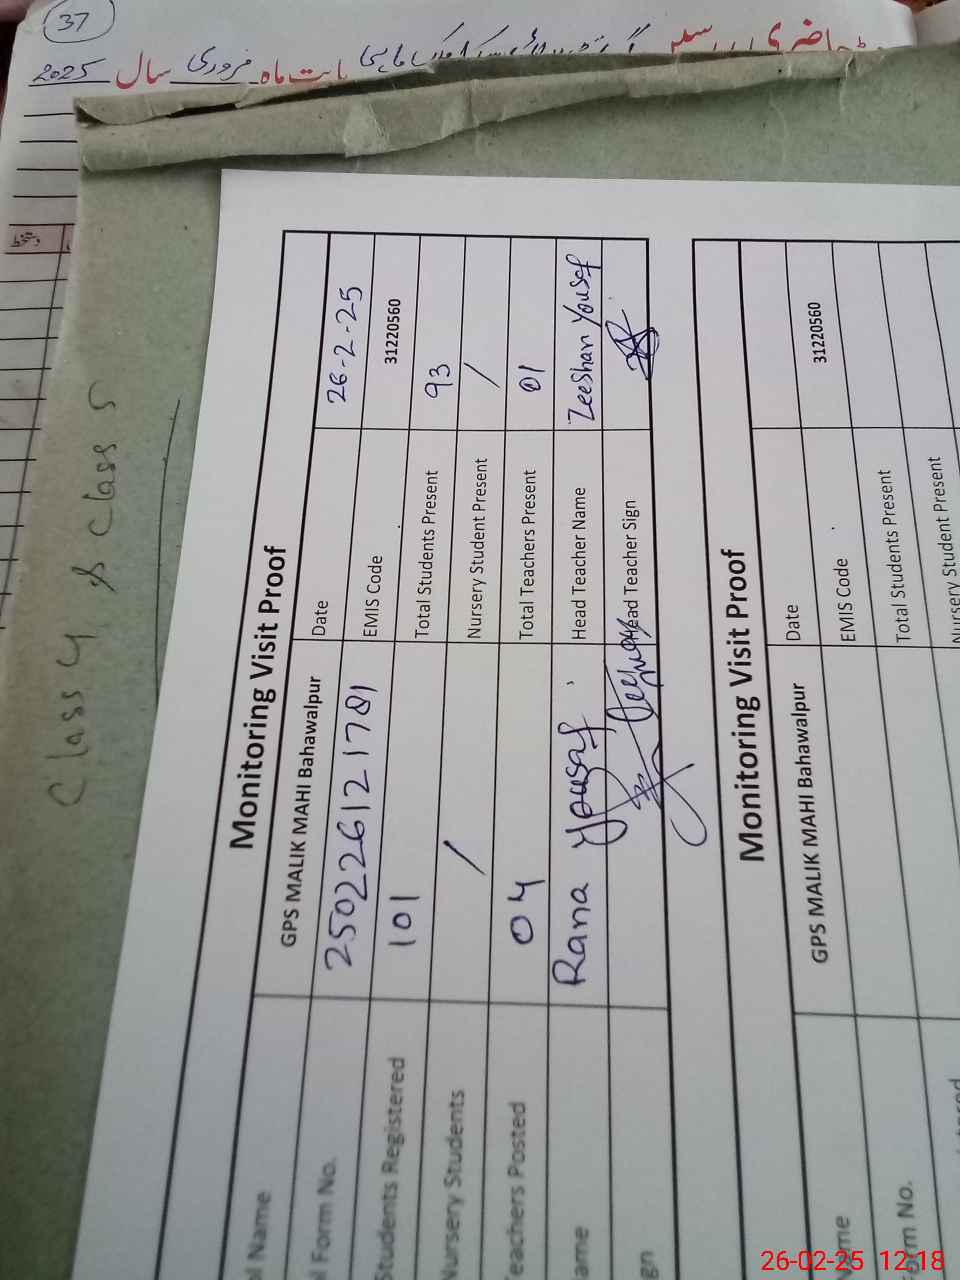 37
بابت ماہ فروری سال 2025
دستخط
Class 4 & Class 5
Monitoring Visit Proof
l Name GPS MALIK MAHI Bahawalpur
l Form No. 250226121781 Date 26-2-25
EMIS Code 31220560
Students Registered 101 Total Students Present 93
Nursery Students / Nursery Student Present /
Teachers Posted 04 Total Teachers Present 01
ame Rana Yousaf Head Teacher Name Zeeshan Yousaf
gn Head Teacher Sign
Monitoring Visit Proof
ame GPS MALIK MAHI Bahawalpur
orm No. Date
EMIS Code 31220560
Total Students Present
Nursery Student Present
26-02-25 12:18